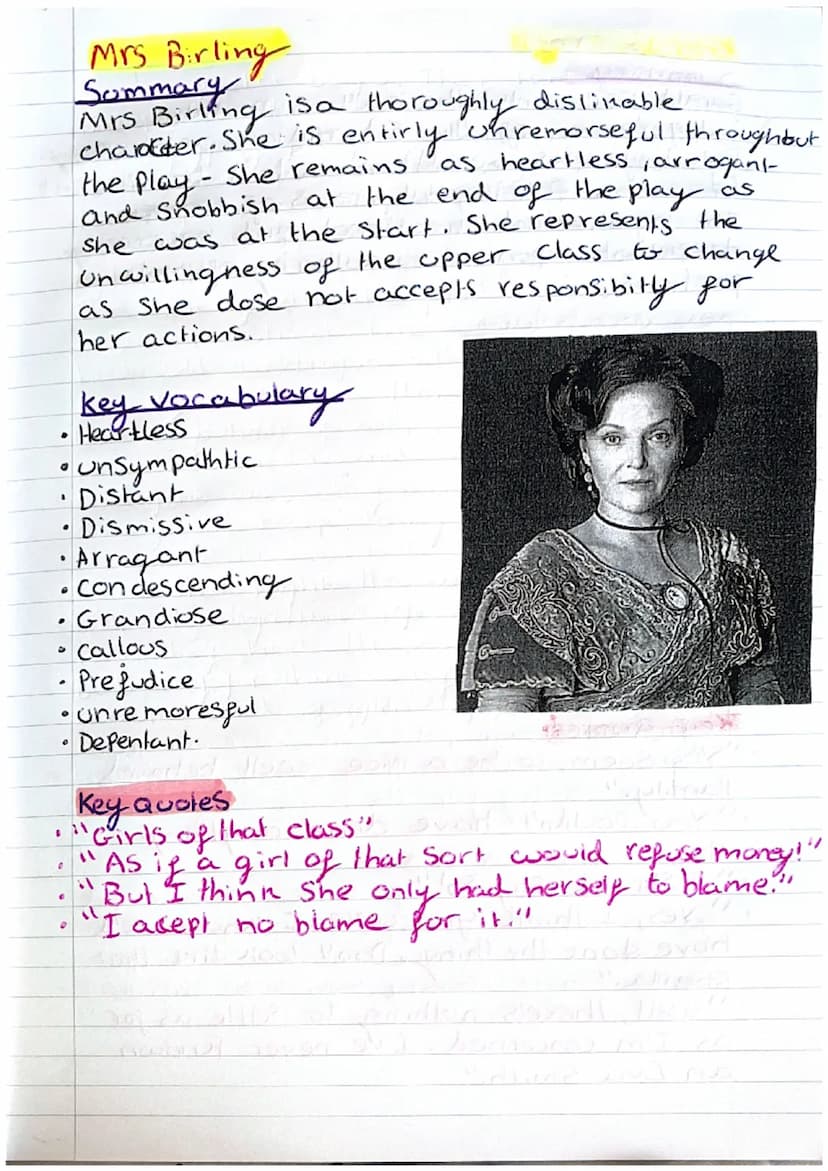 Mrs Birling
Sommary
Mrs Birling is a thoroughly dislinable
charatter. She is entirly unremorseful throughout
the play - She remains as heartless, arrogant
and Snobbish at the end of the play as
she was at the start. She represents the
unwillingness of the upper class to change
as she dose not accepts responsibilty for
her actions.
key vocabulary
• Heartless
• unsympathtic
• Distant
• Dismissive
• Arragant
• Condescending
• Grandiose
• callous
• Prejudice
• unremoresful
• Depentant.
Key quotes
• "Girls of that class"
• "As if a girl of that sort would refuse money!"
• "But I think she only had herself to blame."
• "I acept no blame for it."